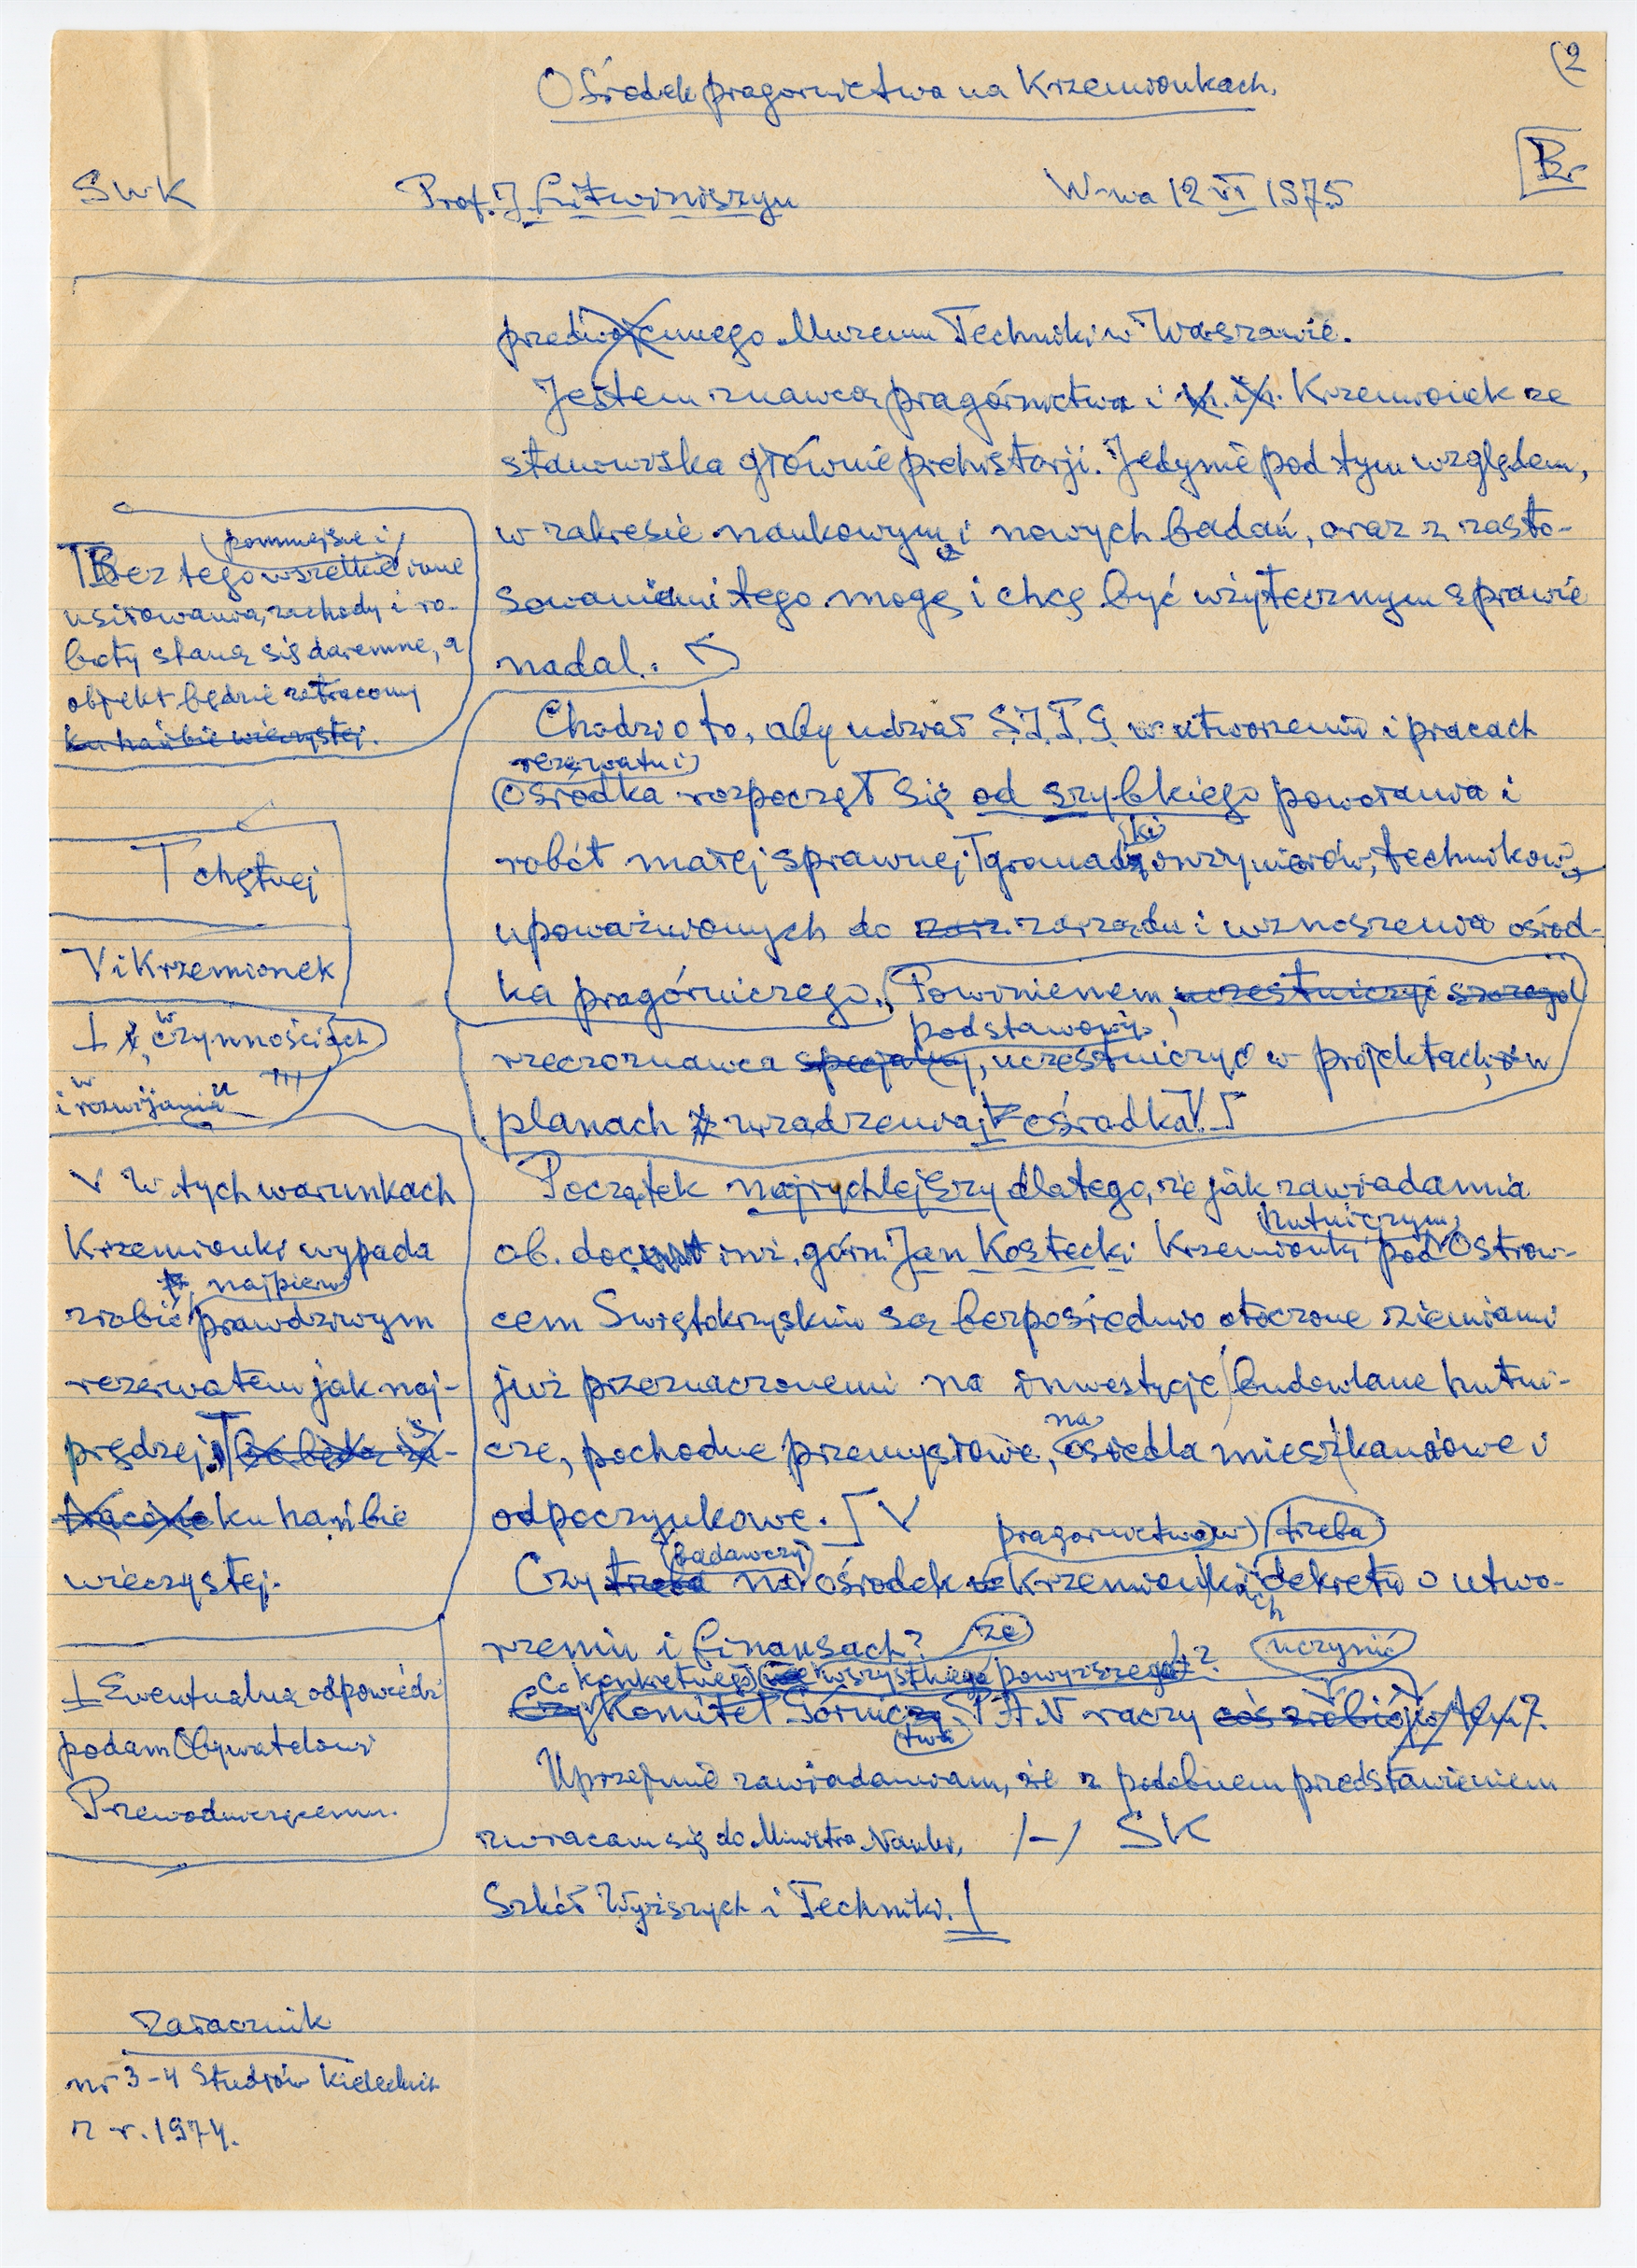 (2
Ośrodek pragornictwa na Krzemionkach.
Br
SWK Prof. J Litwiniszyn W-wa 12 VI 1975
przedwojennego Muzeum Techniki w Warszawie.
Jestem znawcą pragórnictwa i Krzemionek ze
stanowiska głównie prehistorji. Jedynie pod tym względem,
w zakresie naukowym i nowych badań, oraz z zasto-
sowaniami tego mogę i chcę być użytecznym sprawie
nadal.
Chodzi o to, aby udział S.I.T.G. w utworzeniu i pracach
rezerwatu i
ośrodka rozpoczął się od szybkiego powołania i
robót małej sprawnej T gromadki inżynierów, techników
upoważnionych do zarz. zarządu i wznoszenia ośrod-
ka pragórniczego. Powinienem, uczestniczyć szczegół
podstawowy
rzeczoznawca specjalny, uczestniczyć w projektach, w
planach urządzenia ośrodka V.
Początek najrychlejszy dlatego, że jak zawiadamia
hutniczym
ob. docent inż. górn. Jan Kostecki Krzemionki pod Ostrow-
cem Świętokrzyskim są bezpośrednio otoczone ziemiami
już przeznaczonemi na inwestycje budowlane hutni-
na
cze, pochodne przemysłowe, osiedla mieszkaniowe i
odpoczynkowe. V
pragornictwa w trzeba
badawczy
Czy trzeba na ośrodek w Krzemionkach dekretu o utwo-
rzeniu i finansach? ze
Co konkretnego wszystkiego powyższego ? uczynić
Czy Komitet Górnictwa P.A.N raczy coś zrobić w tem?
Uprzejmie zawiadamiam, że z podobnem przedstawieniem
zwracam się do Ministra Nauki, /-/ SK
Szkół Wyższych i Techniki. ⊥
pomniejsze i
T Bez tego wszelkie inne
usiłowania, zachody i ro-
boty staną się daremne, a
objekt będzie zatracony
ku hańbie wieczystej.
T chętnej
V i Krzemionek
⊥ w czynnościach
i w rozwijaniu
V W tych warunkach
Krzemionki wypada
najpierw
zrobić prawdziwym
rezerwatem jak naj-
prędzej, bo będą za-
tracone ku hańbie
wieczystej.
⊥ Ewentualną odpowiedź
podam Obywatelowi
Przewodniczącemu.
Załącznik
nr 3-4 Studiów Kieleckich
z r. 1974.